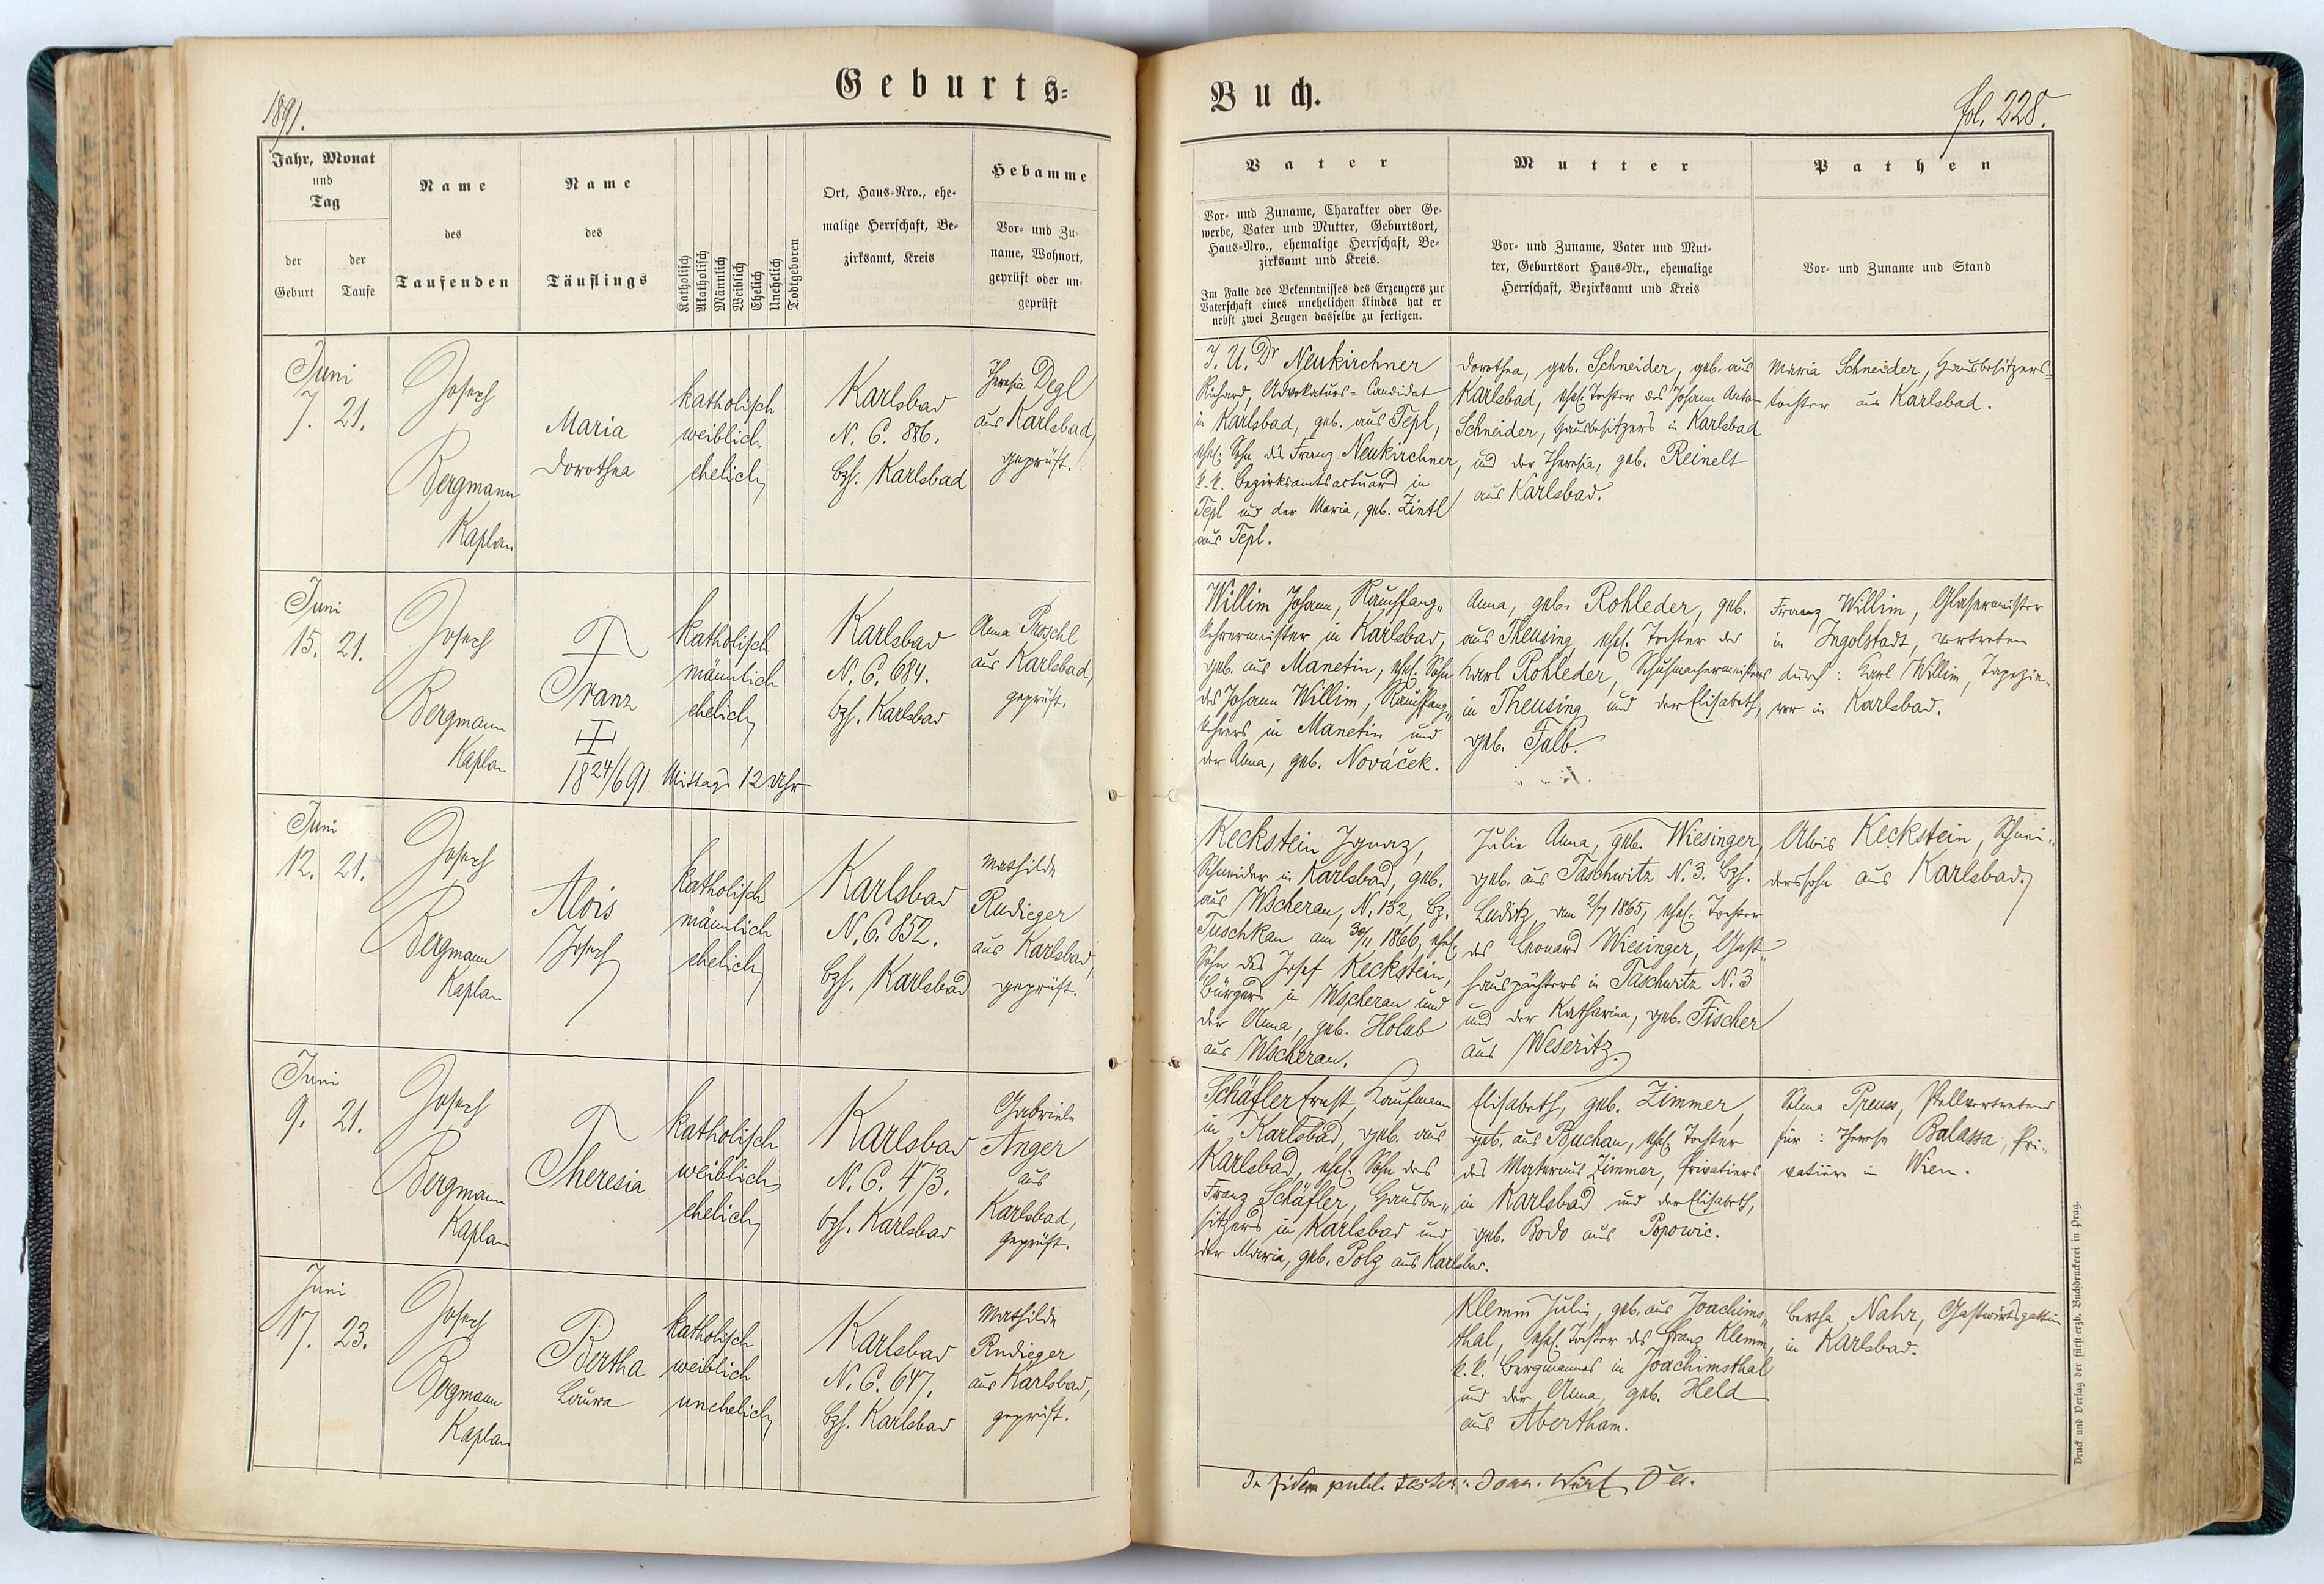 Geburts=
1891.
Jahr, Monat
und
Tag
der
Geburt
der
Taufe
Name
des
Taufenden
Name
des
Täuflings
Katholisch
Akatholisch
Männlich
Weiblich
Ehelich
Unehelich
Todtgeboren
Ort, Haus-Nro., ehe-
malige Herrschaft, Be-
zirksamt, Kreis
Hebamme
Vor- und Zu-
name, Wohnort,
geprüft oder un-
geprüft
Juni
7. 21.
Josef
Bergmann
Kaplan
Maria
Dorothea
katholisch
weiblich
ehelich
Karlsbad
N. C. 886.
bzh. Karlsbad
Theresia Degl
aus Karlsbad,
geprüft.
Juni
15. 21.
Josef
Bergmann
Kaplan
Franz
1824/691 Mittags 12 Uhr
katholisch
männlich
ehelich
Karlsbad
N. C. 684.
bzh. Karlsbad
Anna Proschl
aus Karlsbad,
geprüft.
Juni
12. 21.
Josef
Bergmann
Kaplan
Alois
Josef
katholisch
männlich
ehelich
Karlsbad
N. C. 852.
bzh. Karlsbad
Mathilde
Rudieger
aus Karlsbad,
geprüft.
Juni
9. 21.
Josef
Bergmann
Kaplan
Theresia
katholisch
weiblich
ehelich
Karlsbad
N. C. 473.
bzh. Karlsbad
Gabriele
Anger
aus
Karlsbad,
geprüft.
Juni
17. 23.
Josef
Bergmann
Kaplan
Bertha
Laura
katholisch
weiblich
unehelich
Karlsbad
N. C. 647.
bzh. Karlsbad
Mathilde
Rudieger
aus Karlsbad,
geprüft.
Buch.
fol. 228.
Vater
Vor- und Zuname, Charakter oder Ge-
werbe, Vater und Mutter, Geburtsort,
Haus-Nro., ehemalige Herrschaft, Be-
zirksamt und Kreis.
Im Falle des Bekenntnisses des Erzeugers zur
Vaterschaft eines unehelichen Kindes hat er
nebst zwei Zeugen dasselbe zu fertigen.
Mutter
Vor- und Zuname, Vater und Mut-
ter, Geburtsort Haus-Nr., ehemalige
Herrschaft, Bezirksamt und Kreis
Pathen
Vor- und Zuname und Stand
J. U. Dr Neukirchner
Richard, Advokaturs=Candidat
in Karlsbad, geb. aus Tepl,
ehel. Sohn des Franz Neukirchner,
k. k. Bezirksamtsactuars in
Tepl und der Maria, geb. Zintl
aus Tepl.
Dorothea, geb. Schneider, geb. aus
Karlsbad, ehel. Tochter des Johann Anton
Schneider, Hausbesitzers in Karlsbad
und der Theresia, geb. Reinelt
aus Karlsbad.
Maria Schneider, Hausbesitzers=
tochter aus Karlsbad.
Willim Johann, Rauchfang„
kehrermeister in Karlsbad,
geb. aus Manetin, ehel. Sohn
des Johann Willim, Rauchfang„
kehrers in Manetin und
der Anna, geb. Nováček.
Anna, geb. Rohleder, geb.
aus Theusing, ehel. Tochter des
Karl Rohleder, Schuhmachermeisters
in Theusing und der Elisabeth,
geb. Falb.
Franz Willim, Glasermeister
in Ingolstadt, vertreten
durch: Karl Willim, Tapezie-
rer in Karlsbad.
Keckstein Ignaz,
Schneider in Karlsbad, geb.
aus Wscherau, N. 132, bz.
Tuschkau am 30/11 1866, ehel.
Sohn des Josef Keckstein,
Bürgers in Wscherau und
der Anna, geb. Holub
aus Wscherau.
Julie Anna, geb. Wiesinger,
geb. aus Taschwitz N. 3. bzh.
Luditz, am 2/7 1865, ehel. Tochter
des Leonard Wiesinger, Gast„
hauspächters in Taschwitz N. 3
und der Katharina, geb. Fischer
aus Weseritz.
Alois Keckstein, Schnei„
derssohn aus Karlsbad.
Schäfler Ernst, Kaufmann
in Karlsbad, geb. aus
Karlsbad, ehel. Sohn des
Franz Schäfler, Hausbe„
sitzers in Karlsbad und
der Maria, geb. Polz aus Karlsbad.
Elisabeth, geb. Zimmer,
geb. aus Buchau, ehel. Tochter
des Maternus Zimmer, Privatiers
in Karlsbad und der Elisabeth,
geb. Bodo aus Popowic.
Selma Preuss, Stellvertretend
für: Therese Balassa, Pri„
vatière in Wien.
Klemm Julie, geb. aus Joachims„
thal, ehel. Tochter des Franz Klemm,
k. k. Bergmannes in Joachimsthal
und der Anna, geb. Held
aus Abertham.
Bertha Nahr, Gastwirtsgattin
in Karlsbad.
In fidem publ.
Druck und Verlag der fürsterzb. Buchdruckerei in Prag.